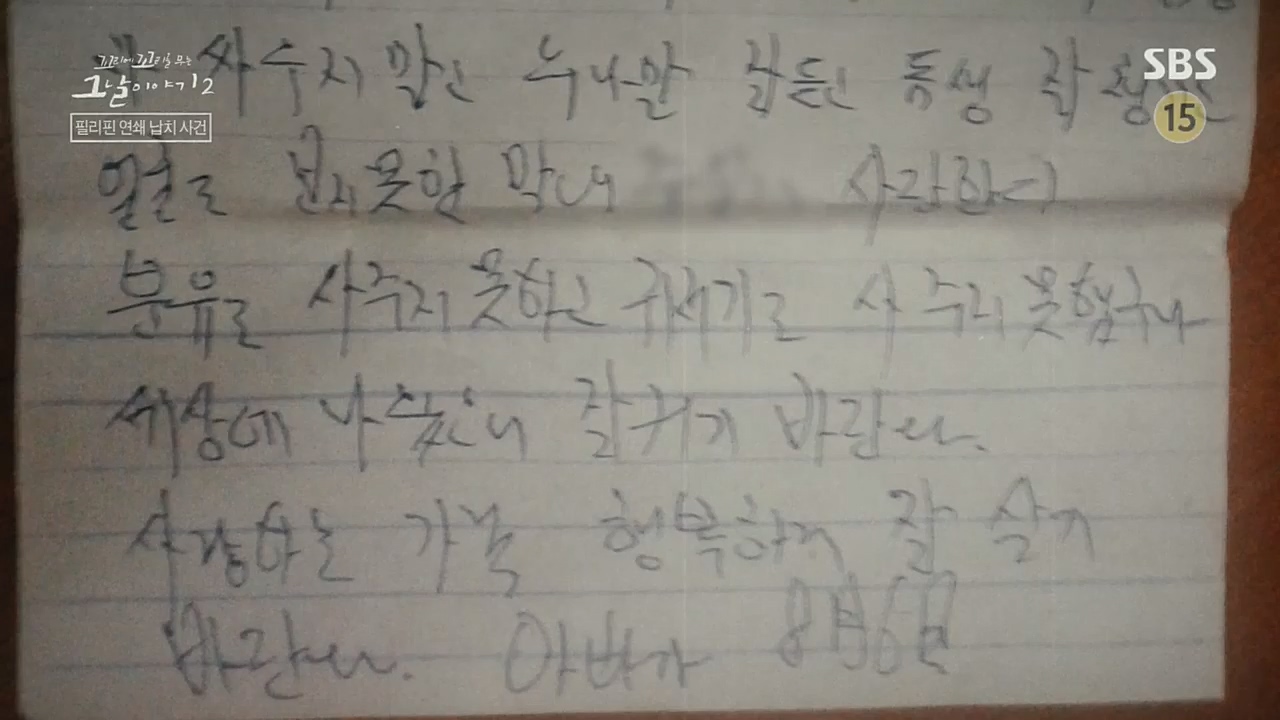 꼬리에 꼬리를 무는
그날 이야기 2
필리핀 연쇄 납치 사건
SBS
15
싸우지 말고 누나말 잘듣고 동생 잘
얼굴도 보지못한 막내 사랑한다
분유도 사주지 못하고 귀저기도 사주지 못했구나
세상에 나왔으니 잘커기 바란다.
사랑하는 가족 행복하게 잘 살기
바란다. 아빠가 8月6日